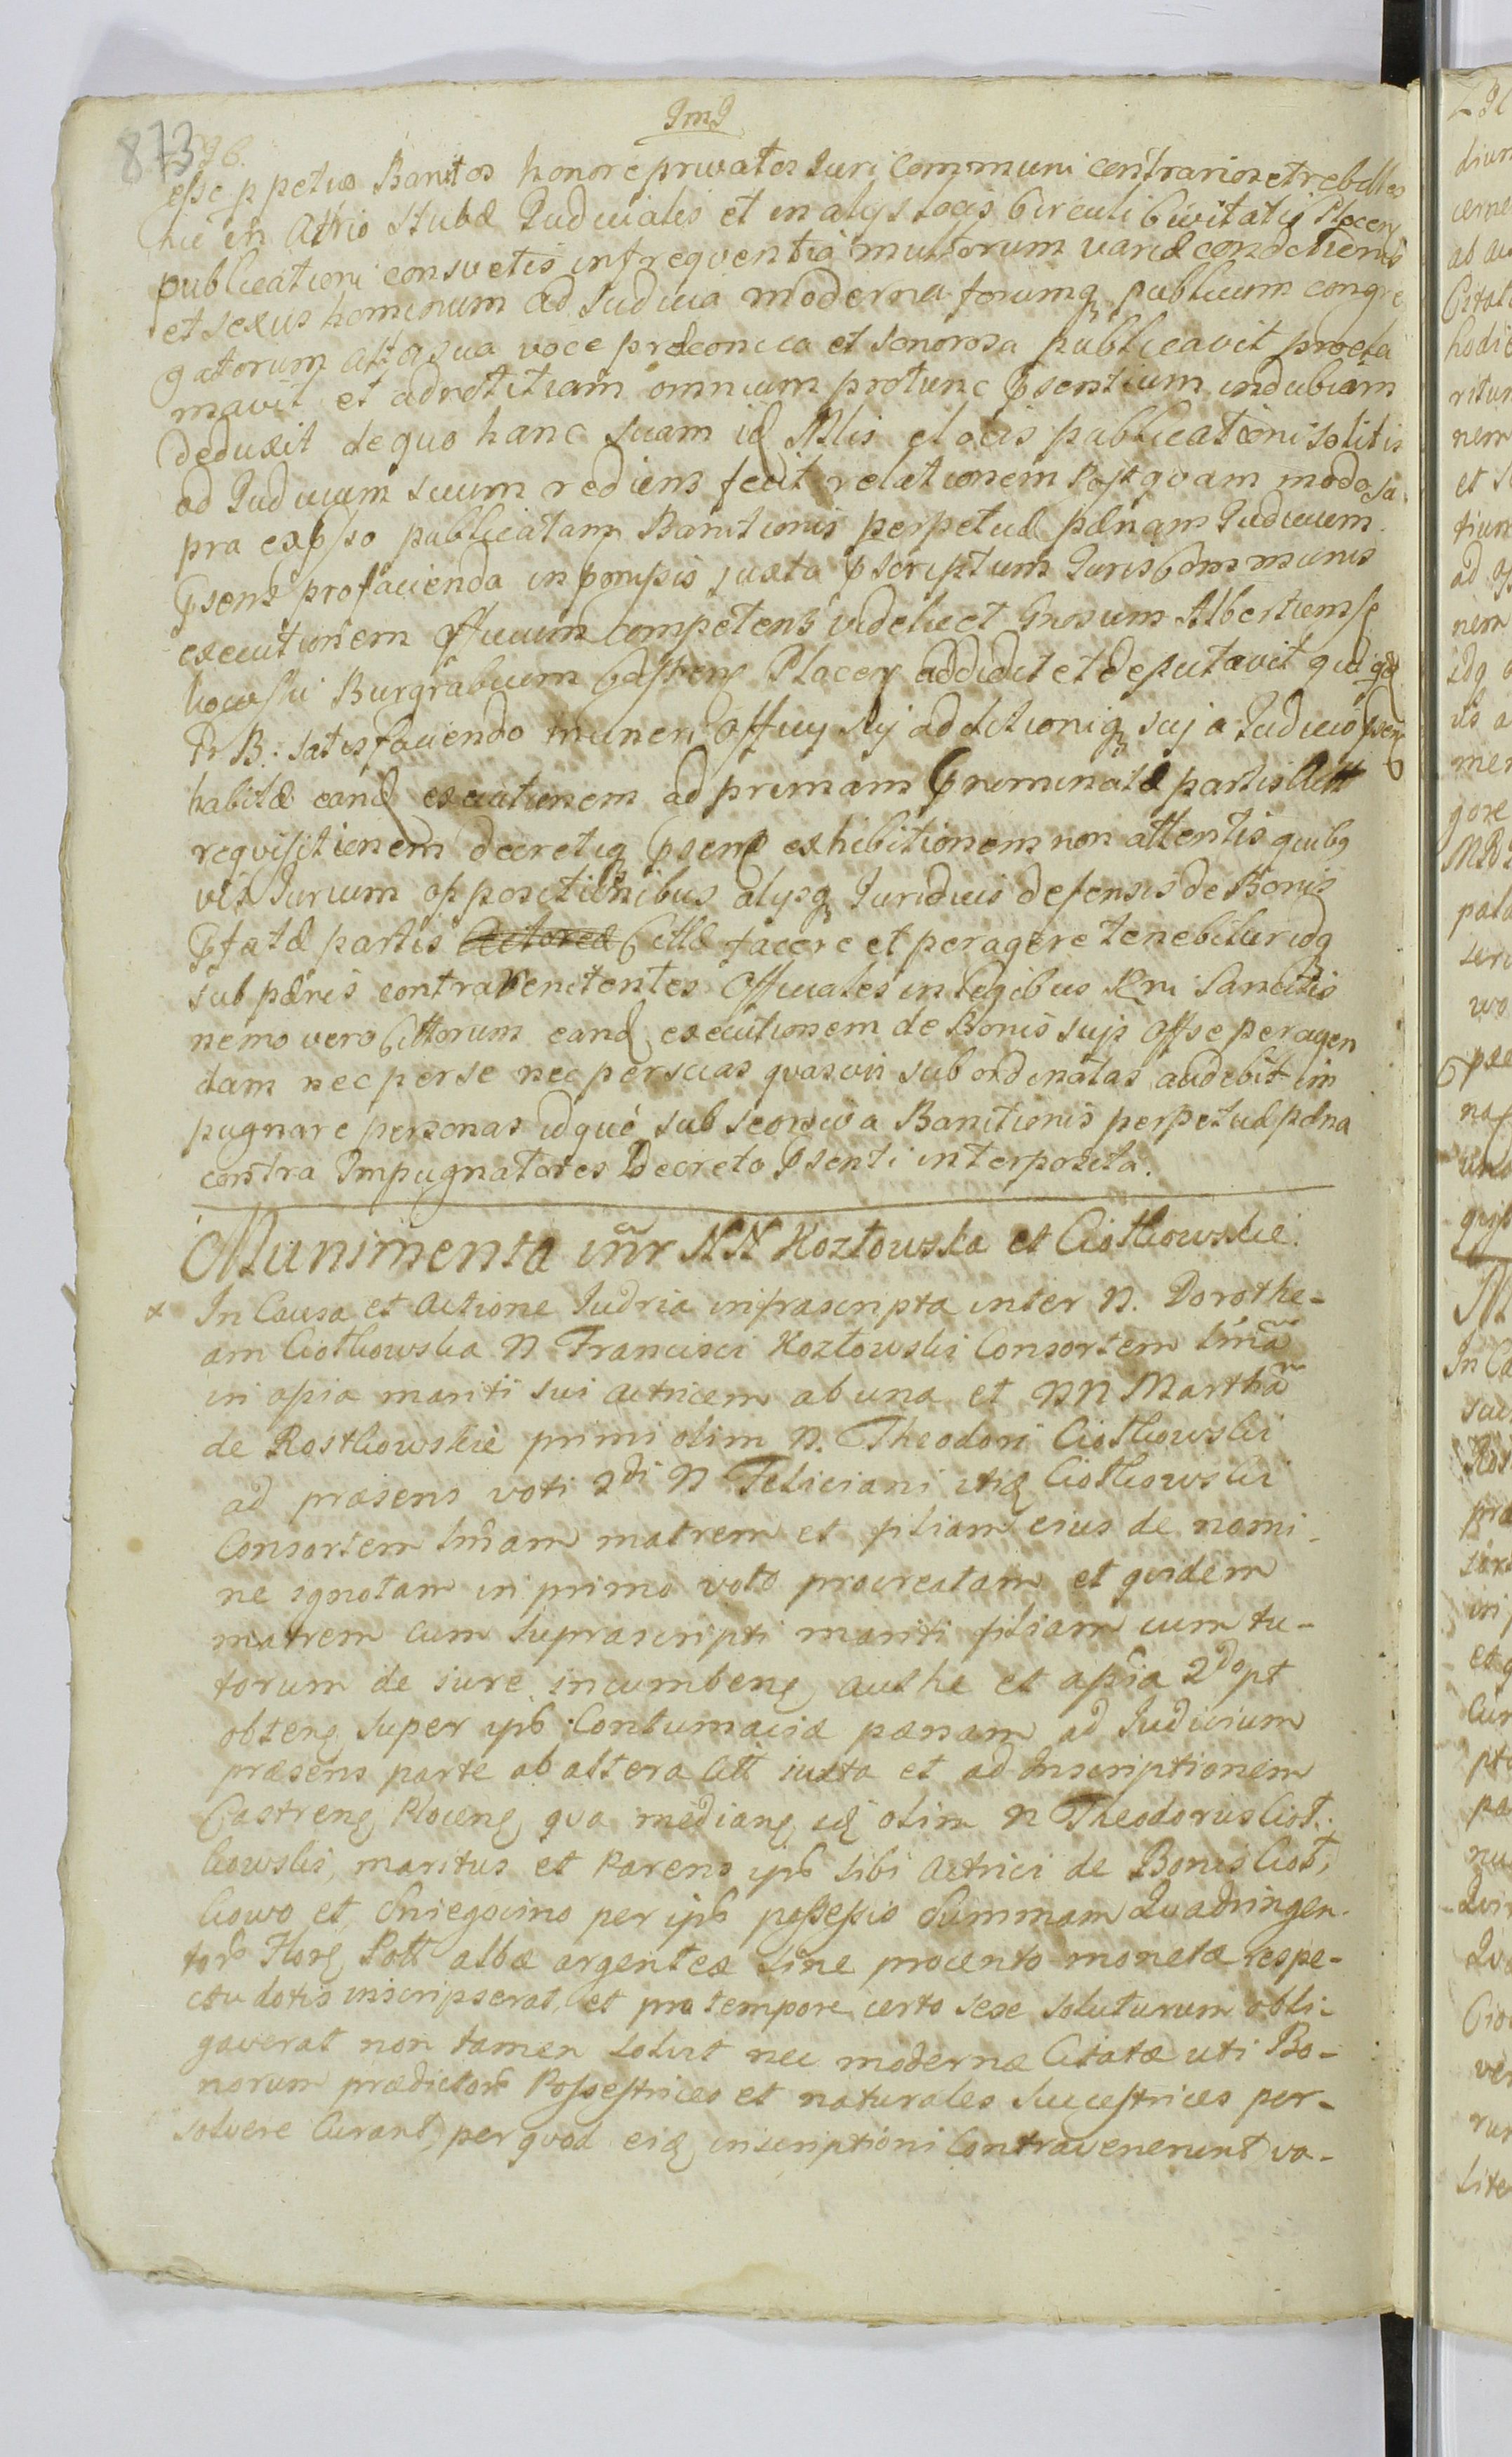 JmJ
873
96.
esse ppetuo Banitos honore privatos Juri Communi contrarios et rebelles
hic in Atrio Stubæ Judicialis et in alys Locis Circuli Civitatis Plocen
publicationi consvetis in freqventia multorum variæ conditionis
et sexus hominum ad Judicia moderna forumq publicum congre
gatorum altaqsua voce præconica et sonorosa publicavit procla
mavit et ad notitiam omnium protunc psentium indubiam
deduxit de quo hanc suam id Mlis et locis publicationi solitis
ad Judicium suum rediens fecit relationem Postqvam modo su
pra expsso publicatam Banitionis perpetuæ pænam Judicium
psens pro facienda in pmpis juxta pscriptum Juris Communis
executionem officium Competens videlicet Gnosum Albertum
kowski Burgrabium Castrens Plocen addidit et deputavit qui qd
D B: satisfaciendo muneri Officy sui additioniq suj a Judicio psen
habitæ eand executionem ad primam pnominatæ partis Act
reqvisitionem decretiq psens exhibitionem non attentis quibq
vis Jurium oppositionibus alysq Juridicis defensis de Bonis
pfatæ partis Actoreæ Cittæ facere et peragere tenebitur idq
sub pænis contra Renitentes Officiales in legibus Rni Sancitis
nemo vero Cittorum eand executionem de Bonis sujs Offse peragen
dam nec per se nec per suas qvasvis subordinatas audebit im
pugnare personas idqué sub seorsiva Banitionis perpetuæ pæna
contra Impugnatores Decreto psenti interposita.
Munimenta inr NN Kozłowska et Ciołkowskie.
x In Causa et Actione Judria infrascripta inter N. Dorothe-
am Ciołkowska N Francisci Kozłowski Consortem lmã
in apia mariti sui Actricem ab una et NN Marthã
de Rostkowskie primi olim N. Theodori Ciołkowski
ad præsens voti 2di N Feliciani itid Ciołkowski
Consortem lmam matrem et filiam eius de nomi-
ne ignotam in primo voto procreatam et qvidem
matrem cum suprascripti mariti filiam cum tu-
torum de iure incumbens authe et apia 2do pt
obtens super ips Contumaciæ pænam ad Judicium
præsens parte ab altera Citt iuxta et ad Inscriptionem
Castrens Plocens qva medians id olim N Theodorus Cioł-
kowski, maritus et Parens ips sibi Actrici de Bonis Cioł-
kowo et Sniegocino per ips possessis Summam Qvadringen-
tor Flors Poll albæ argenteæ sine procento monetæ respe-
ctu dotis inscripserat, et pro tempore certo sese soluturum obli-
gaverat non tamen solvit nec modernæ Citatæ uti Bo-
norum prædictor Possestrices et naturales Sucestrices per-
solvere Curant, per qvod eid inscriptioni Contravenerunt va-